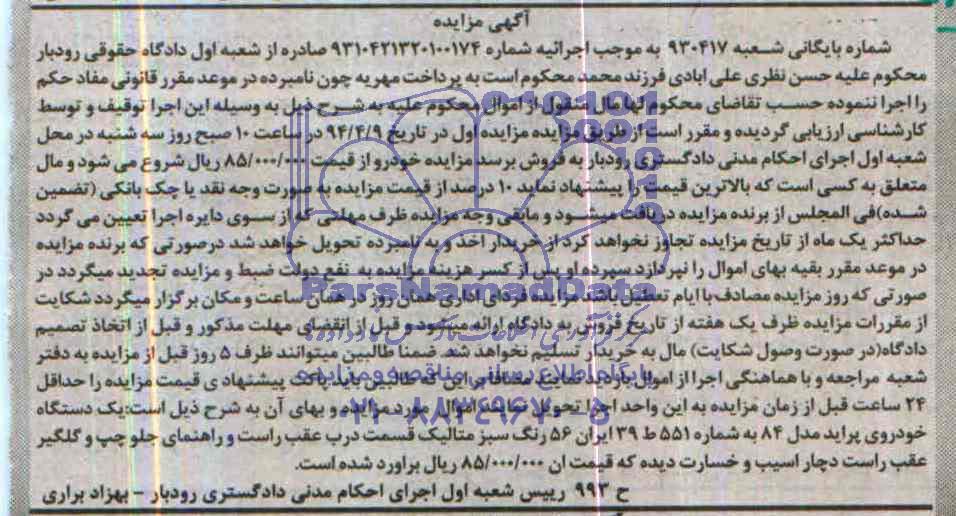 آگهی مزایده
شماره بایگانی شعبه ۹۳۰۴۱۷ به موجب اجرائیه شماره ۹۳۱۰۴۲۱۳۲۰۱۰۰۱۷۴ صادره از شعبه اول دادگاه حقوقی رودبار
محکوم علیه حسن نظری علی ابادی فرزند محمد محکوم است به پرداخت مهریه چون نامبرده در موعد مقرر قانونی مفاد حکم
را اجرا ننموده حسب تقاضای محکوم لها مال منقول از اموال محکوم علیه به شرح ذیل به وسیله این اجرا توقیف و توسط
کارشناسی ارزیابی گردیده و مقرر است از طریق مزایده مزایده اول در تاریخ ۹۴/۴/۹ در ساعت ۱۰ صبح روز سه شنبه در محل
شعبه اول اجرای احکام مدنی دادگستری رودبار به فروش برسد مزایده خودرو از قیمت ۸۵/۰۰۰/۰۰۰ ریال شروع می شود و مال
متعلق به کسی است که بالاترین قیمت را پیشنهاد نماید ۱۰ درصد از قیمت مزایده به صورت وجه نقد یا چک بانکی (تضمین
شده)فی المجلس از برنده مزایده دریافت میشود و مابقی وجه مزایده ظرف مهلتی که از سوی دایره اجرا تعیین می گردد
حداکثر یک ماه از تاریخ مزایده تجاوز نخواهد کرد از خریدار اخذ و به نامبرده تحویل خواهد شد درصورتی که برنده مزایده
در موعد مقرر بقیه بهای اموال را نپردازد سپرده او پس از کسر هزینه مزایده به نفع دولت ضبط و مزایده تجدید میگردد در
صورتی که روز مزایده مصادف با ایام تعطیل باشد مزایده فردای اداری همان روز در همان ساعت و مکان برگزار میگردد شکایت
از مقررات مزایده ظرف یک هفته از تاریخ فروش به دادگاه ارائه میشود و قبل از انقضای مهلت مذکور و قبل از اتخاذ تصمیم
دادگاه(در صورت وصول شکایت) مال به خریدار تسلیم نخواهد شد. ضمنا طالبین میتوانند ظرف ۵ روز قبل از مزایده به دفتر
شعبه مراجعه و با هماهنگی اجرا از اموال بازدید نمایند مضافا براین که طالبین باید پاکت پیشنهاد ی قیمت مزایده را حداقل
۲۴ ساعت قبل از زمان مزایده به این واحد اجرا تحویل نمایند اموال مورد مزایده و بهای آن به شرح ذیل است:یک دستگاه
خودروی پراید مدل ۸۴ به شماره ۵۵۱ ط ۳۹ ایران ۵۶ رنگ سبز متالیک قسمت درب عقب راست و راهنمای جلو چپ و گلگیر
عقب راست دچار اسیب و خسارت دیده که قیمت ان ۸۵/۰۰۰/۰۰۰ ریال براورد شده است.
ح ۹۹۳ رییس شعبه اول اجرای احکام مدنی دادگستری رودبار – بهزاد براری
ParsNamadData
پایگاه اطلاع رسانی مناقصه و مزایده
۰۲۱-۸۸۳۴۹۶۷۰-۵